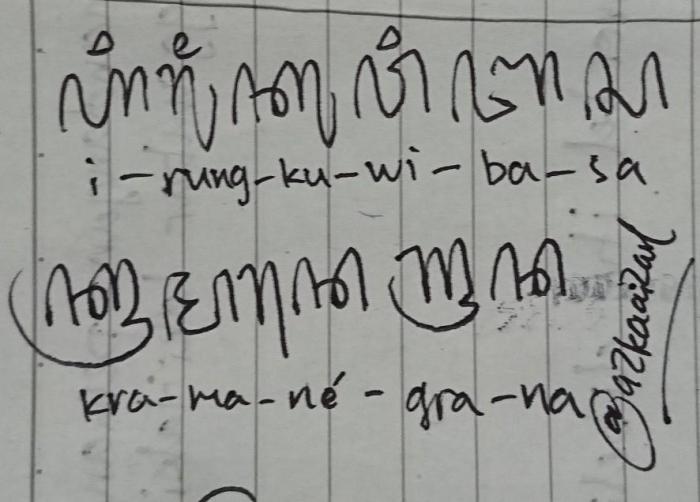 ꦲꦶꦫꦸꦁꦏꦸꦮꦶꦧꦱ
i-rung-ku-wi-ba-sa
ꦏꦿꦩꦤꦺꦒꦿꦤ
kra-ma-né-gra-na